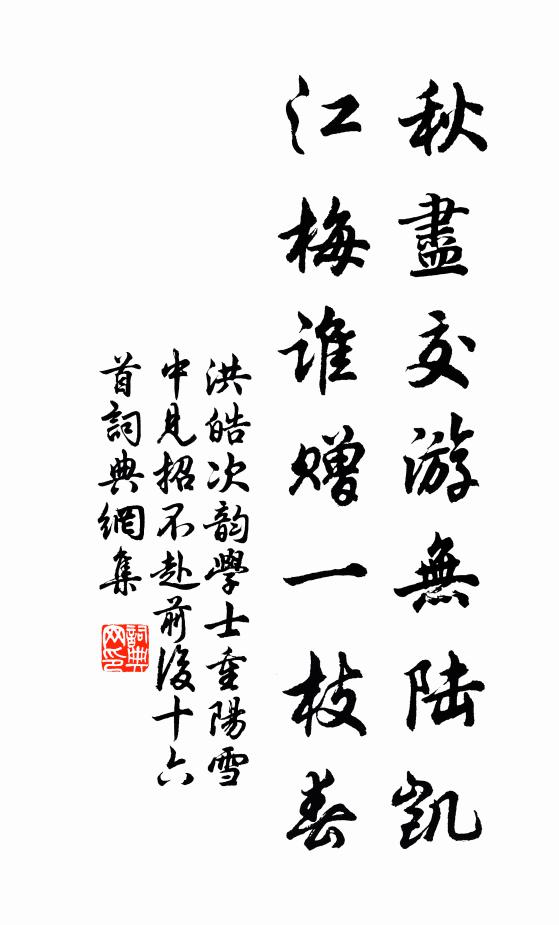 秋盡交游無陸凱
江梅誰贈一枝春
洪皓次韵學士重陽雪
中見招不赴前後十六
首詞典網集
詞典
网印